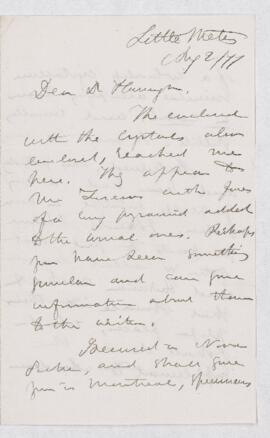 Little Metis
Aug 2/77
Dear Dr Harrington
The enclosed
with the crystals also
enclosed, reached me
here. They appear to
me with
of a pyramid added
to the usual ones. Perhaps
you have seen something
similar and can give
information about them
to the writer.
I secured in Nova
Scotia, and shall give
you in Montreal, specimens